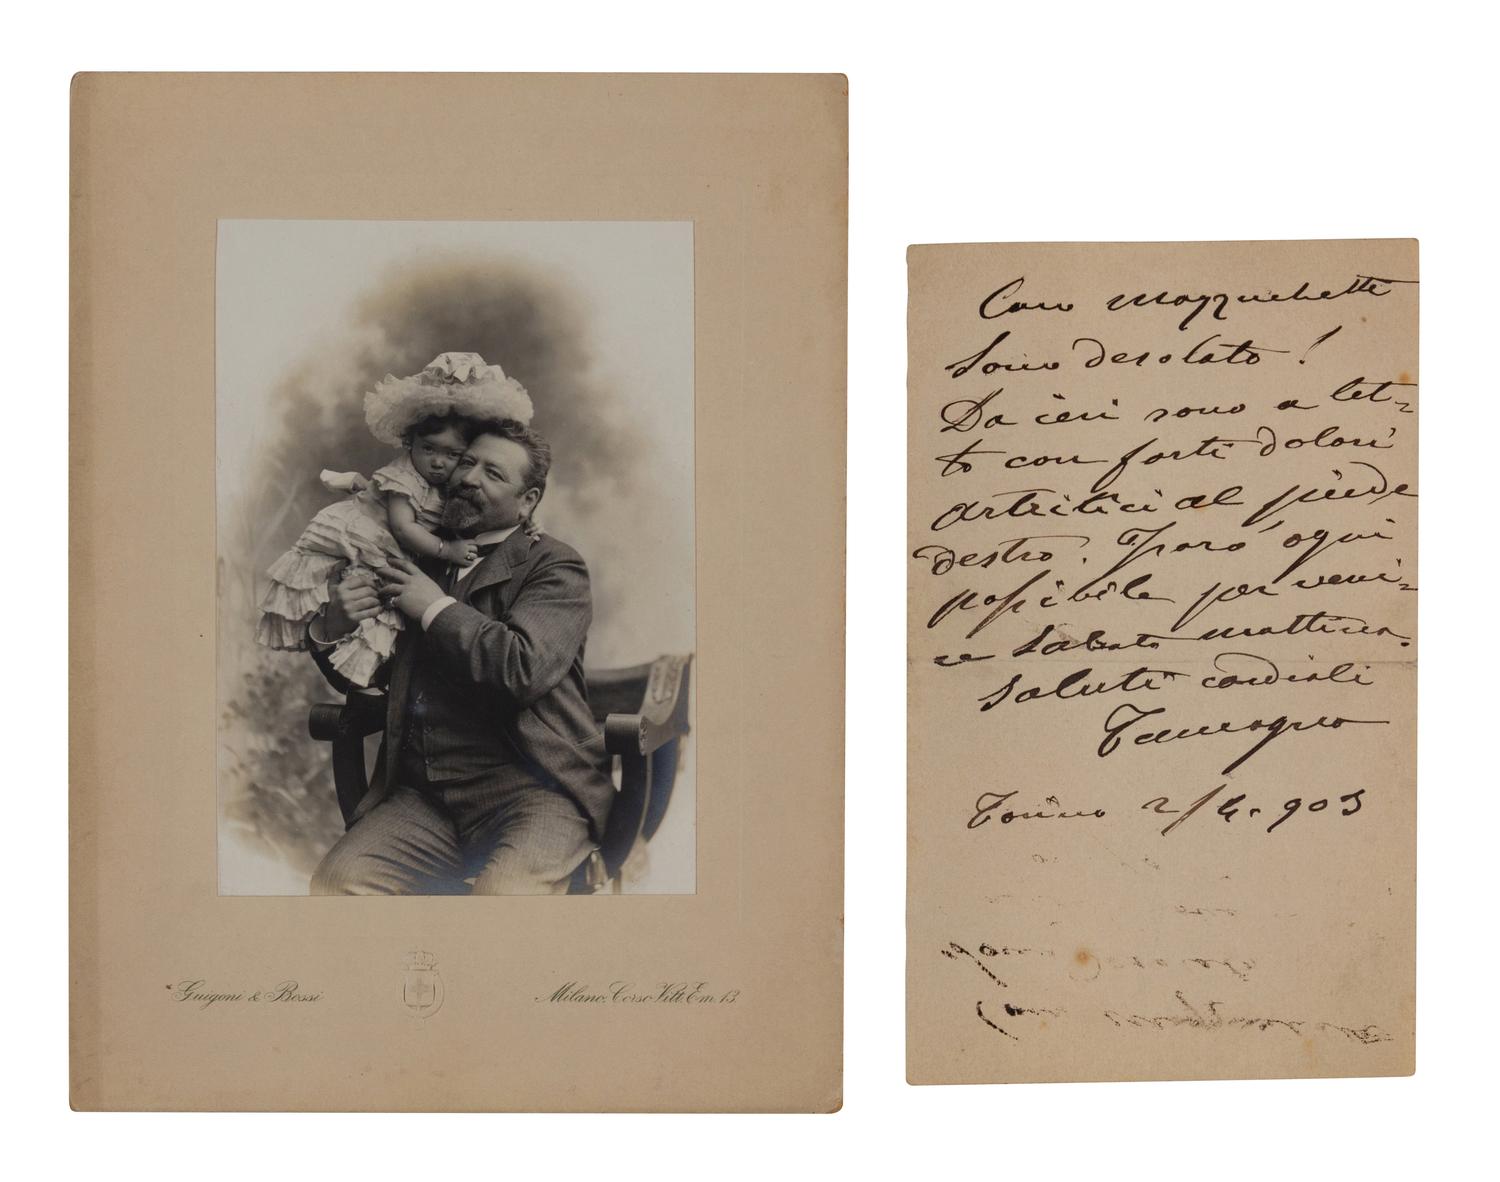 Guigoni & Bossi
Milano. Corso Vitt. Em. 13
Caro Mazzuchetti
Sono desolato!
Da ieri sono a let=
to con forti dolori
artritici al piede
destro. Farò ogni
possibile per veni=
re Sabato mattina.
Saluti cordiali
Tamagno
Torino 2/4. 903